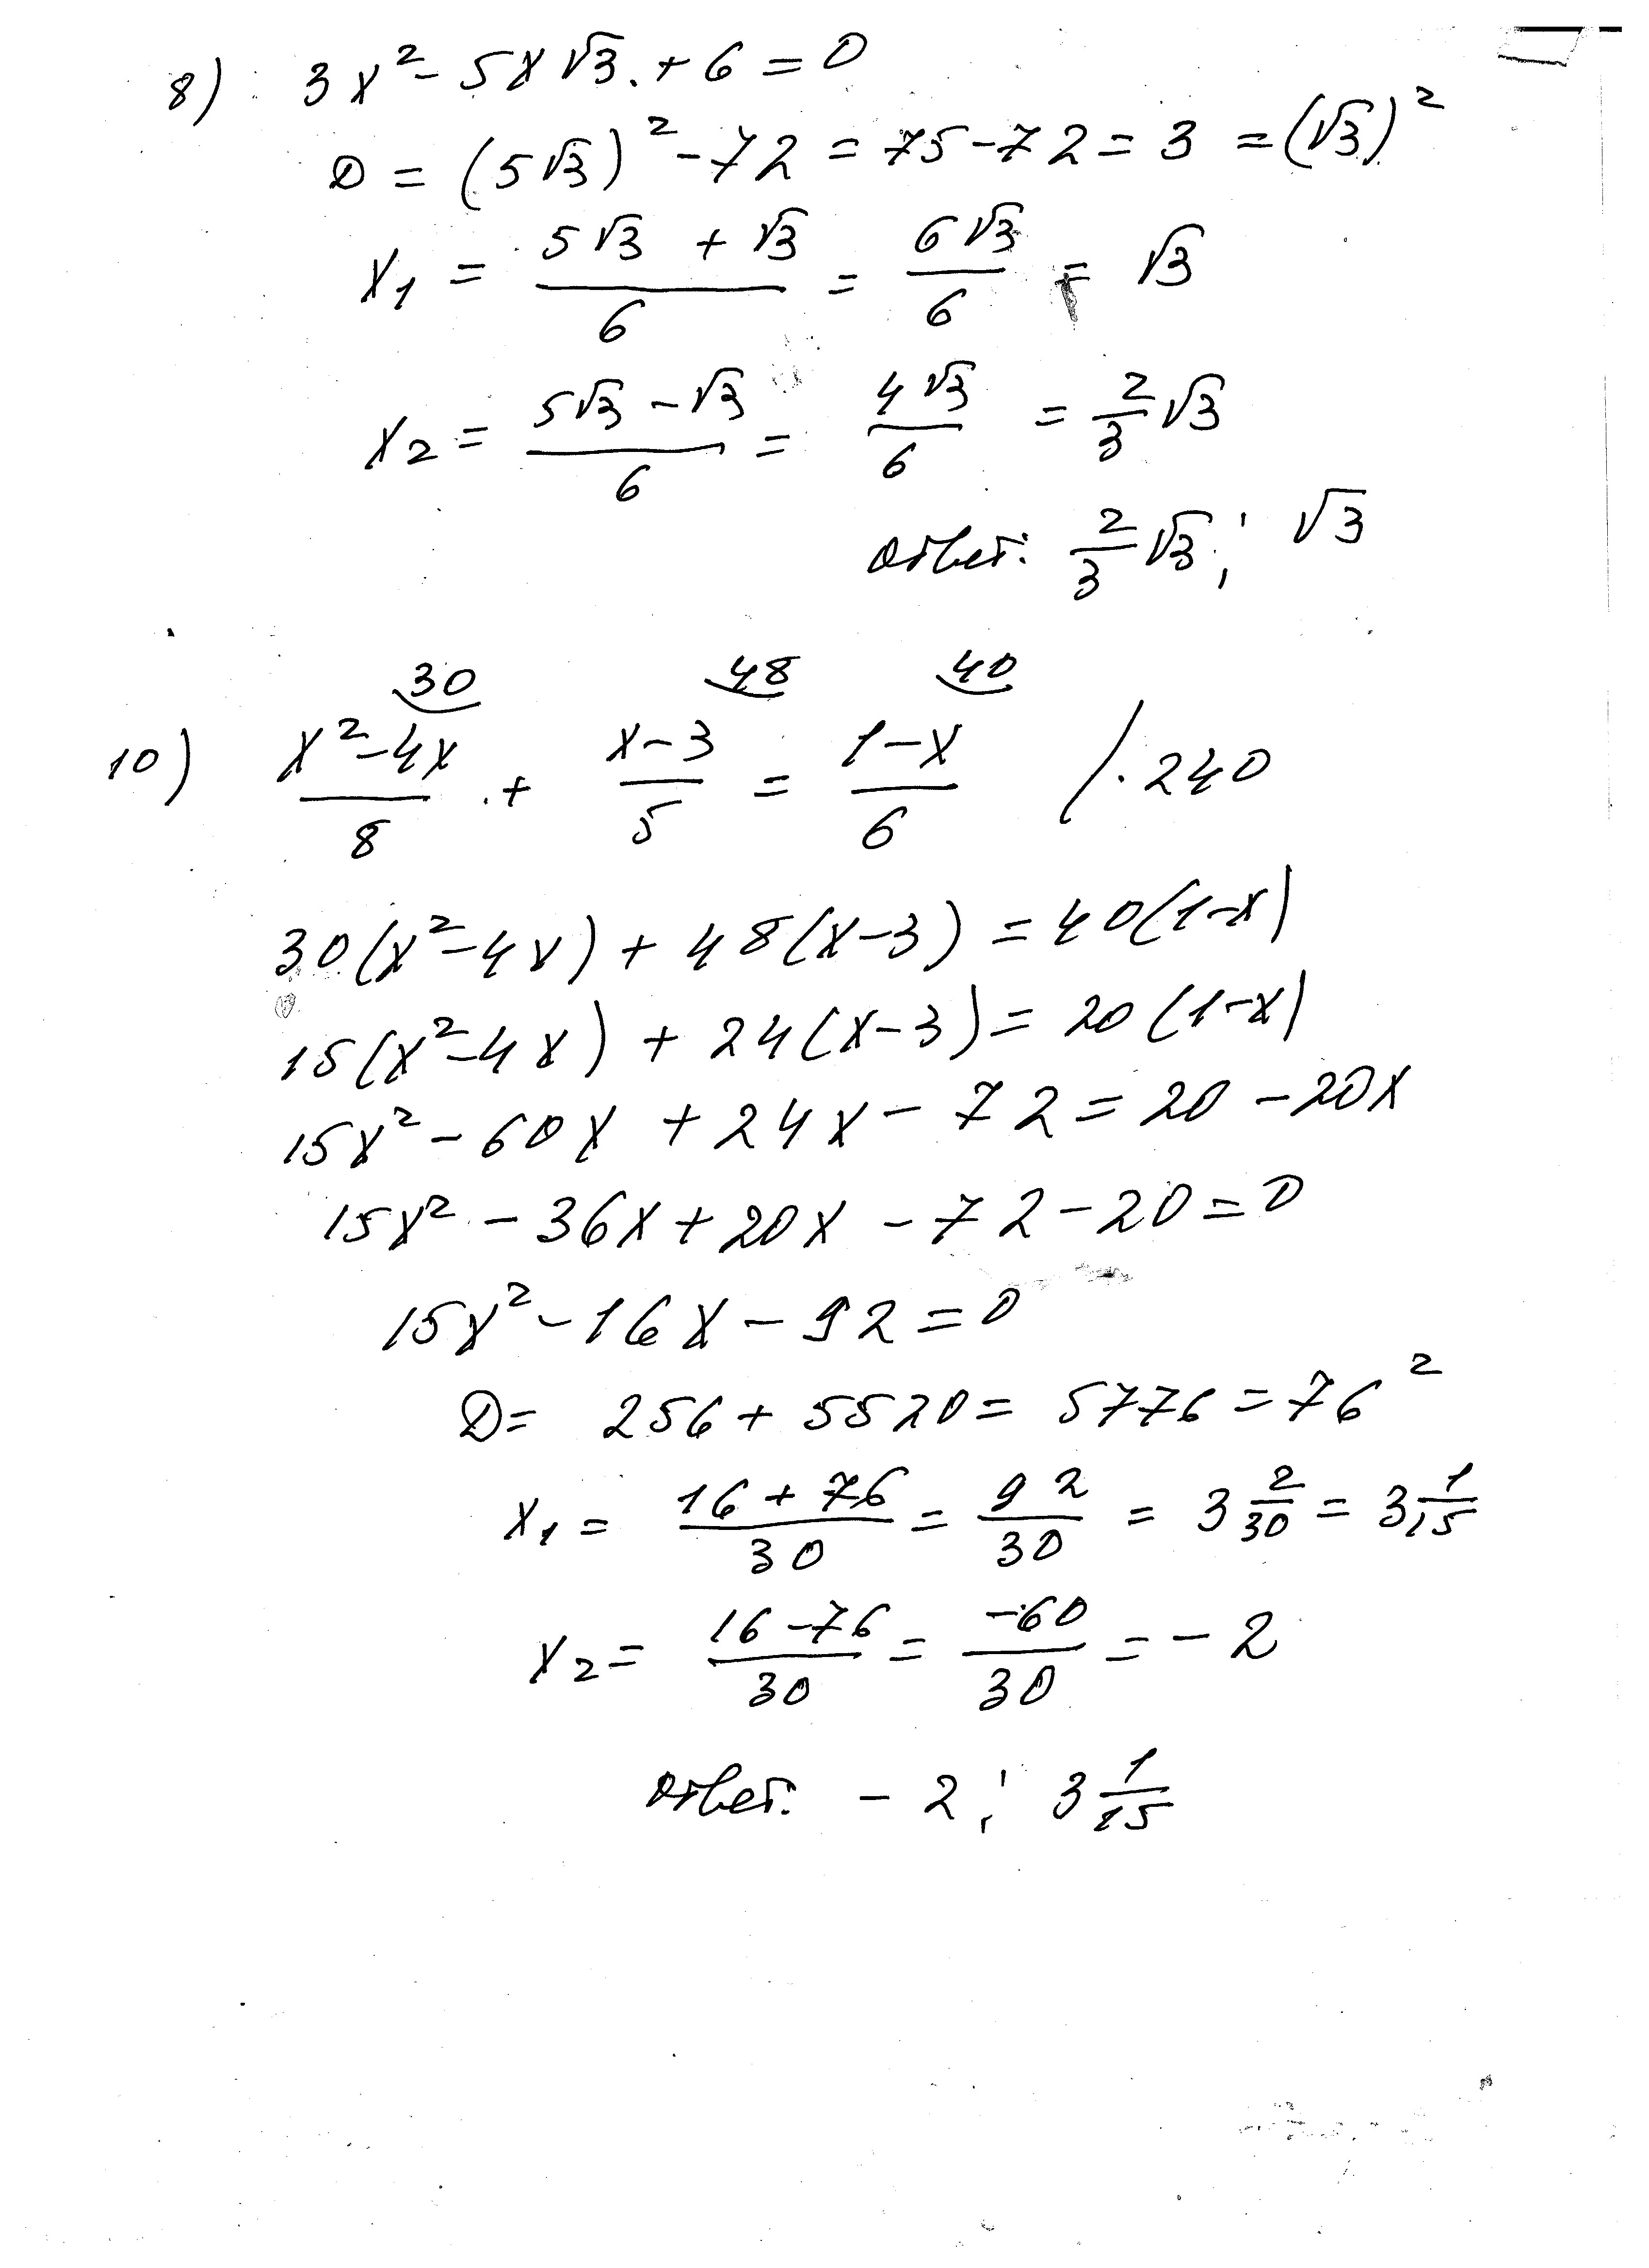 8) 3x² - 5x√3 + 6 = 0
D = (5√3)² - 72 = 75 - 72 = 3 = (√3)²
x₁ = (5√3 + √3)/6 = 6√3/6 = √3
x₂ = (5√3 - √3)/6 = 4√3/6 = 2/3 √3
Ответ: 2/3 √3; √3
30 48 40
10) (x² - 4x)/8 + (x - 3)/5 = (1 - x)/6 /· 240
30(x² - 4x) + 48(x - 3) = 40(1 - x)
15(x² - 4x) + 24(x - 3) = 20(1 - x)
15x² - 60x + 24x - 72 = 20 - 20x
15x² - 36x + 20x - 72 - 20 = 0
15x² - 16x - 92 = 0
D = 256 + 5520 = 5776 = 76²
x₁ = (16 + 76)/30 = 92/30 = 3 2/30 = 3 1/15
x₂ = (16 - 76)/30 = -60/30 = -2
Ответ: -2; 3 1/15